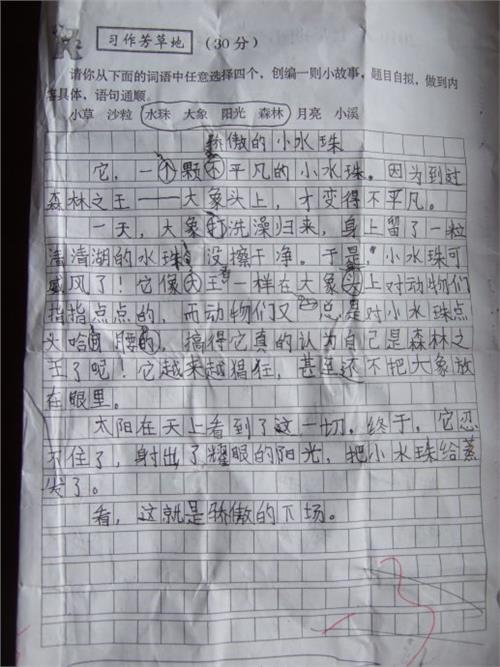 习作芳草地 (30分)
请你从下面的词语中任意选择四个，创编一则小故事，题目自拟，做到内
容具体，语句通顺。
小草 沙粒 水珠 大象 阳光 森林 月亮 小溪
骄傲的小水珠
它，一个颗不平凡的小水珠。因为到过
森林之王——大象头上，才变得不平凡。
一天，大象洗澡归来，身上留了一粒
清湖的水珠没擦干净。于是，小水珠可
威风了！它像大王一样在大象头上对动物们
指指点点的，而动物们又总是对小水珠点
头哈腰的，搞得它真的认为自己是森林之
王了呢！它越来越猖狂，甚至还不把大象放
在眼里。
太阳在天上看到了这一切，终于，它忍
不住了，射出了耀眼的阳光，把小水珠给蒸
发了。
看，这就是骄傲的下场。